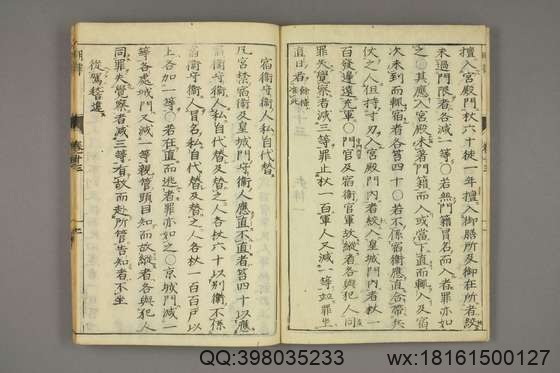 擅入宮殿門杖六十徒一年擅入御膳所及御在所者絞
未過門限者各減一等○若無門籍冒名而入者罪亦如
之○其應入宮殿未著門籍而入或當下直而輒入及宿
次未到而輒宿者各笞四十○若不係宿衛應直合帶兵
仗之人但持寸刃入宮殿門內者絞入皇城門內者杖一
百發邊遠充軍○門官及宿衛官軍故縱者各與犯人同
罪失覺察者減三等罪止杖一百軍人又減一等並罪坐
直日者餘條准此
宿衛守衛人私自代替
凡宮禁宿衛及皇城門守衛人應直不直者笞四十以應
宿衛守衛人私自代替及替之人各杖六十以別衛不係
宿衛守衛人冒名私自代替及替之人各杖一百百戶以
上各加一等○若在直而逃者罪亦如之○京城門減一
等各處城門又減一等親管頭目知而故縱者各與犯人
同罪失覺察者減三等有故而赴所管告知者不坐
從駕稽違
QQ:398035233
wx:18161500127